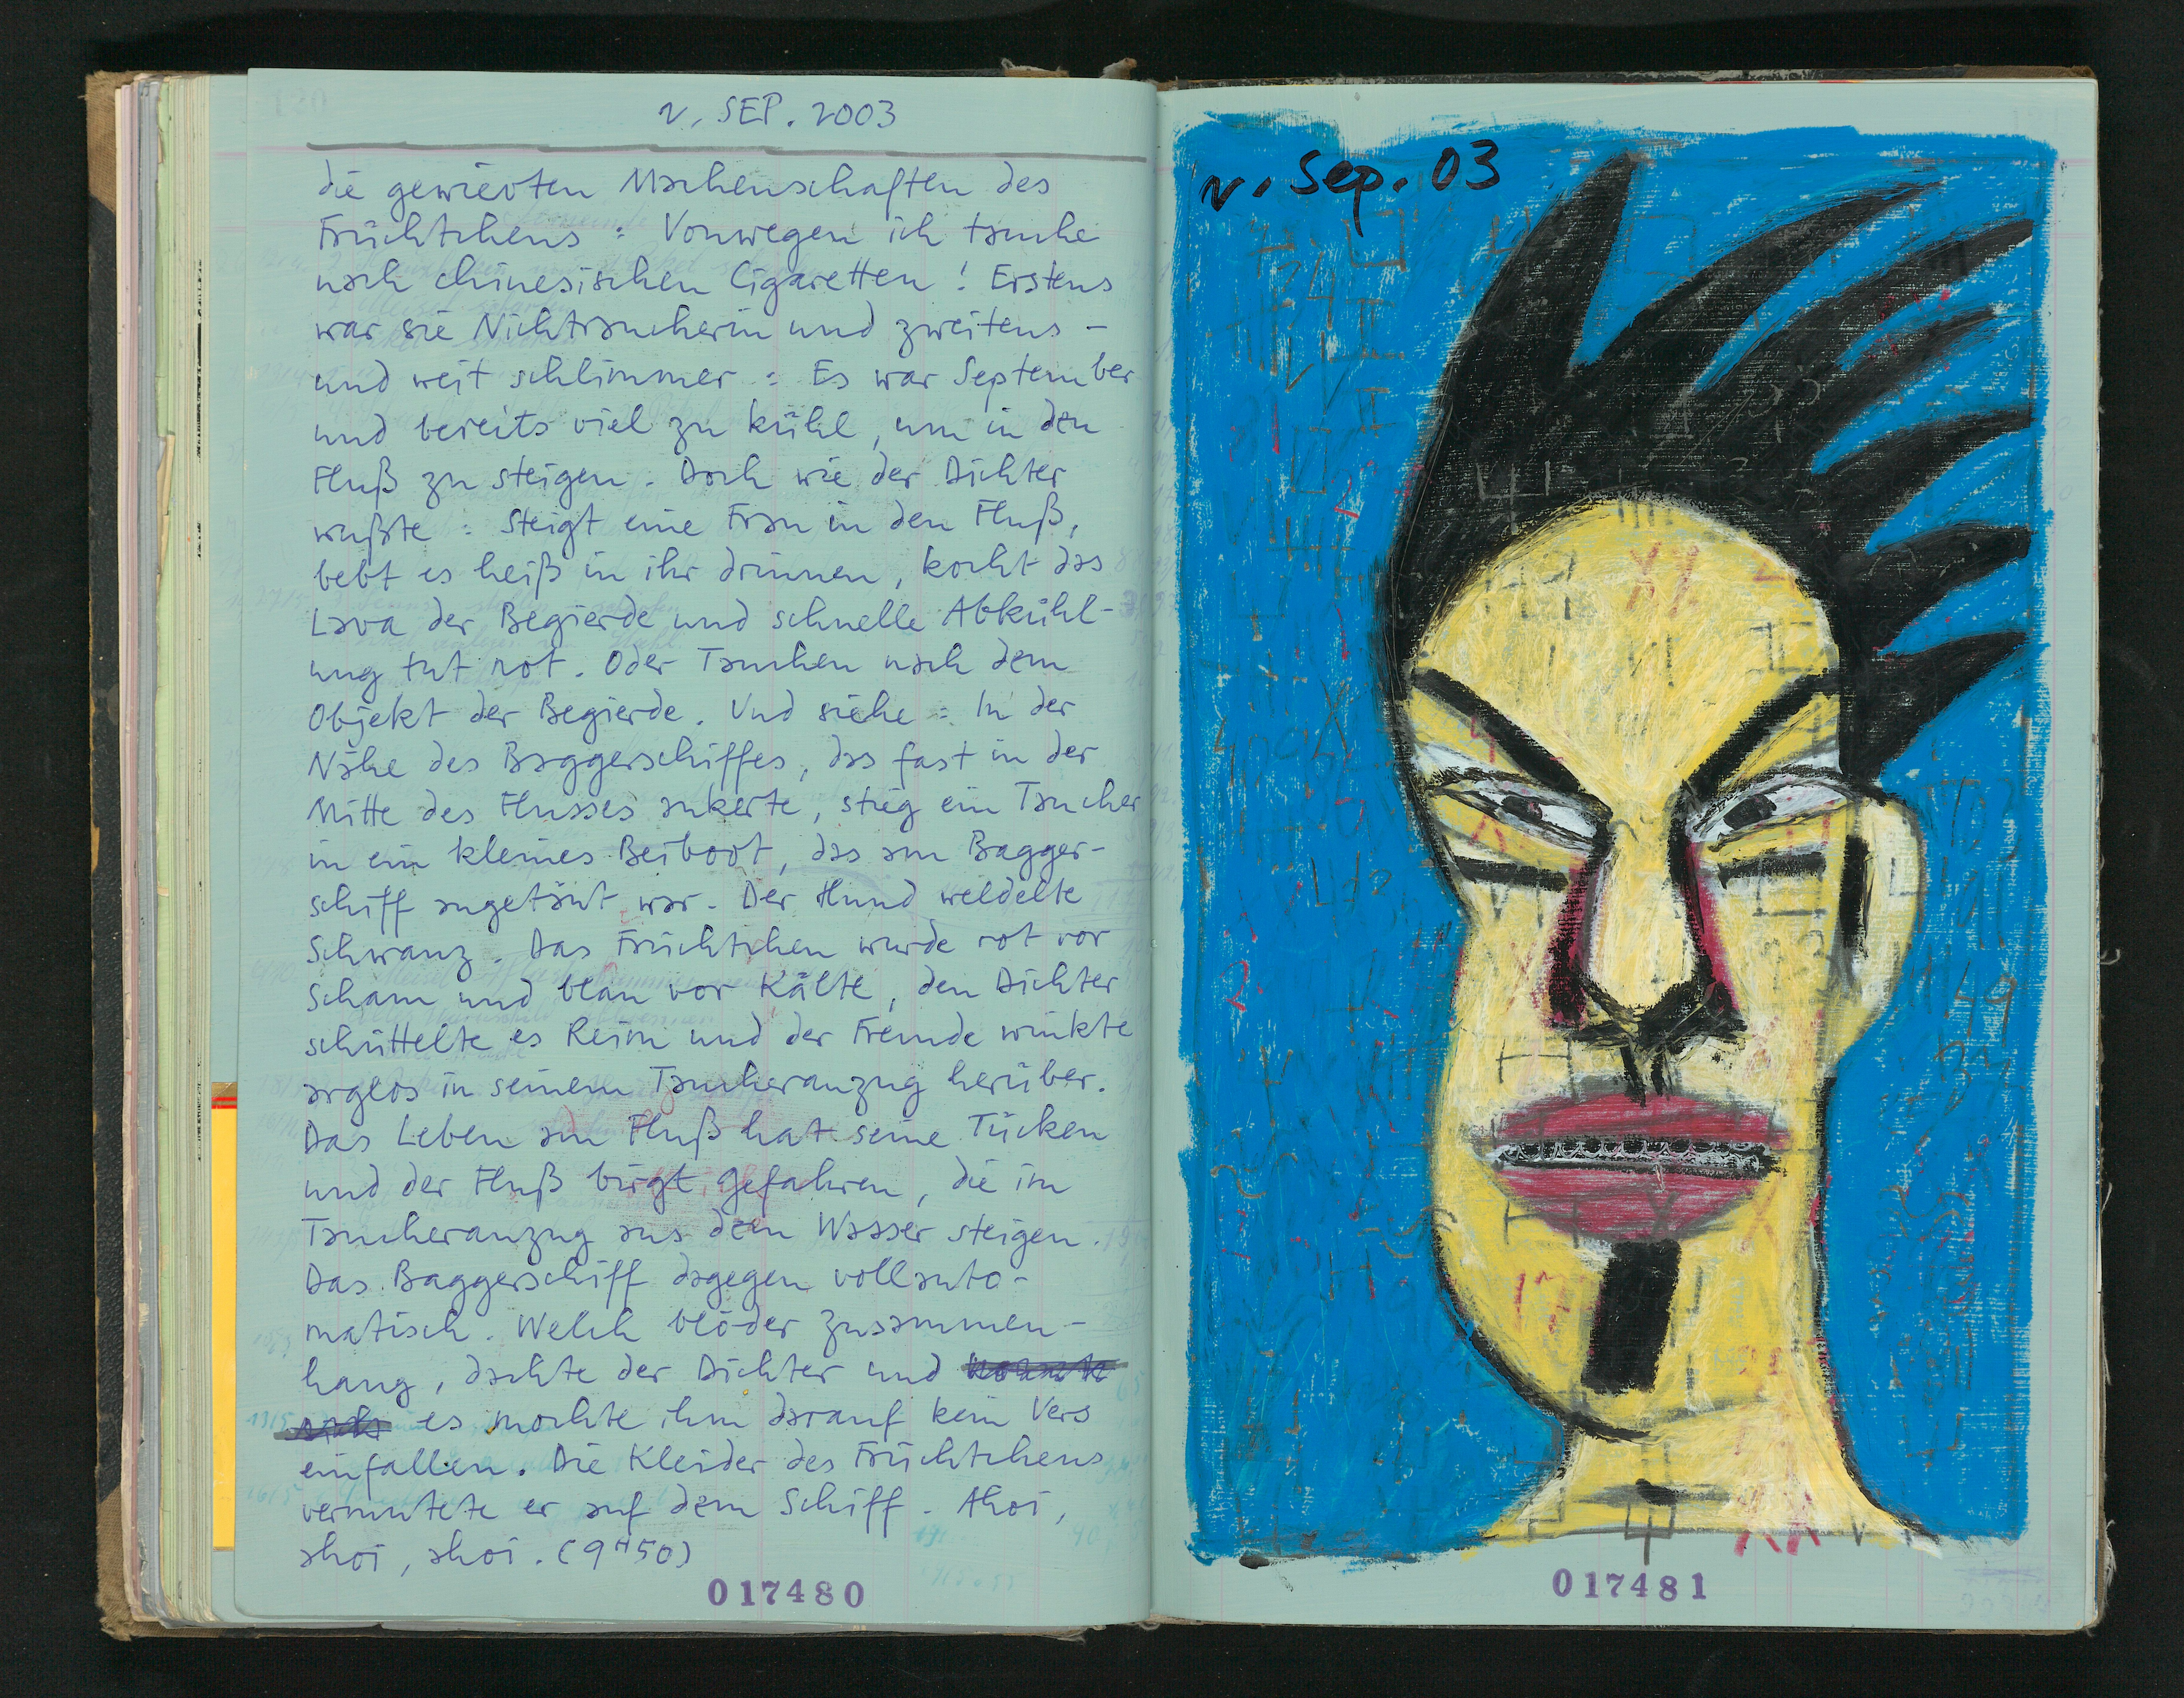 2. SEP. 2003
die gewievten Machenschaften des
Früchtchens : Vonwegen ich tauche
nach chinesischen Cigaretten ! Erstens
war sie Nichtraucherin und zweitens –
und weit schlimmer : Es war September
und bereits viel zu kühl, um in den
Fluß zu steigen. Doch wie der Dichter
wußte : Steigt eine Frau in den Fluß,
bebt es heiß in ihr drinnen, kocht das
Lava der Begierde und schnelle Abkühl-
ung tut not. Oder Tauchen nach dem
Objekt der Begierde. Und siehe : In der
Nähe des Baggerschiffes, das fast in der
Mitte des Flusses ankerte, stieg ein Taucher
in ein kleines Beiboot, das am Bagger-
schiff angetäut war. Der Hund weldelte
Schwanz. Das Früchtchen wurde rot vor
Scham und blau vor Kälte, den Dichter
schüttelte es Reim und der Fremde winkte
arglos in seinem Taucheranzug herüber.
Das Leben am Fluß hat seine Tücken
und der Fluß birgt Gefahren, die im
Taucheranzug aus dem Wasser steigen.
Das Baggerschiff dagegen vollauto-
matisch. Welch blöder Zusammen-
hang, dachte der Dichter und
es mochte ihm darauf kein Vers
einfallen. Die Kleider des Früchtchens
vermutete er auf dem Schiff. Ahoi,
ahoi, ahoi. (9H50)
017480
2. Sep. 03
017481